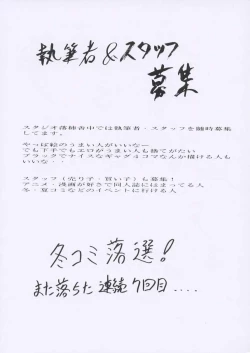 執筆者&スタッフ
募集
スタジオ落極舎中では執筆者・スタッフを随時募集
してます。
やっぱ絵のうまい人がいいなー
でも下手でもエロがうまい人も捨てがたい
ブラックでナイスなギャグ4コマなんか描ける人も
いいな・・
スタッフ(売り子・買い子)も募集!
アニメ・漫画が好きで同人誌にはまってる人
冬・夏コミなどのイベントに行ける人
冬コミ落選!
また落ちた連続7回目....